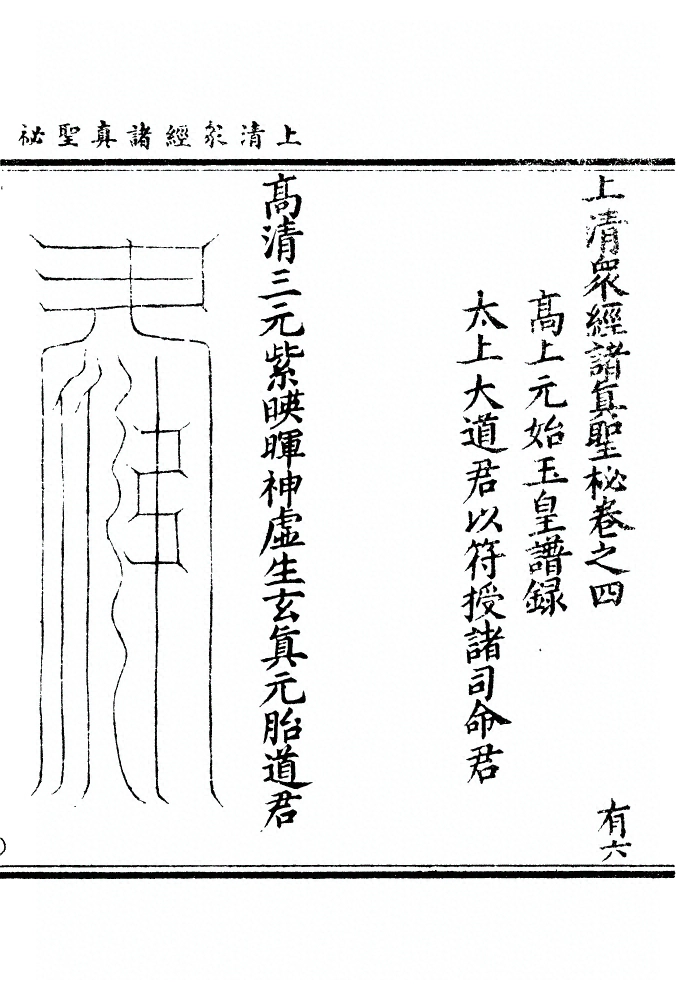 上清眾經諸真聖祕
上清衆經諸真聖祕卷之四
有六
高上元始玉皇譜録
太上大道君以符授諸司命君
高清三元紫映暉神虛生玄真元胎道君